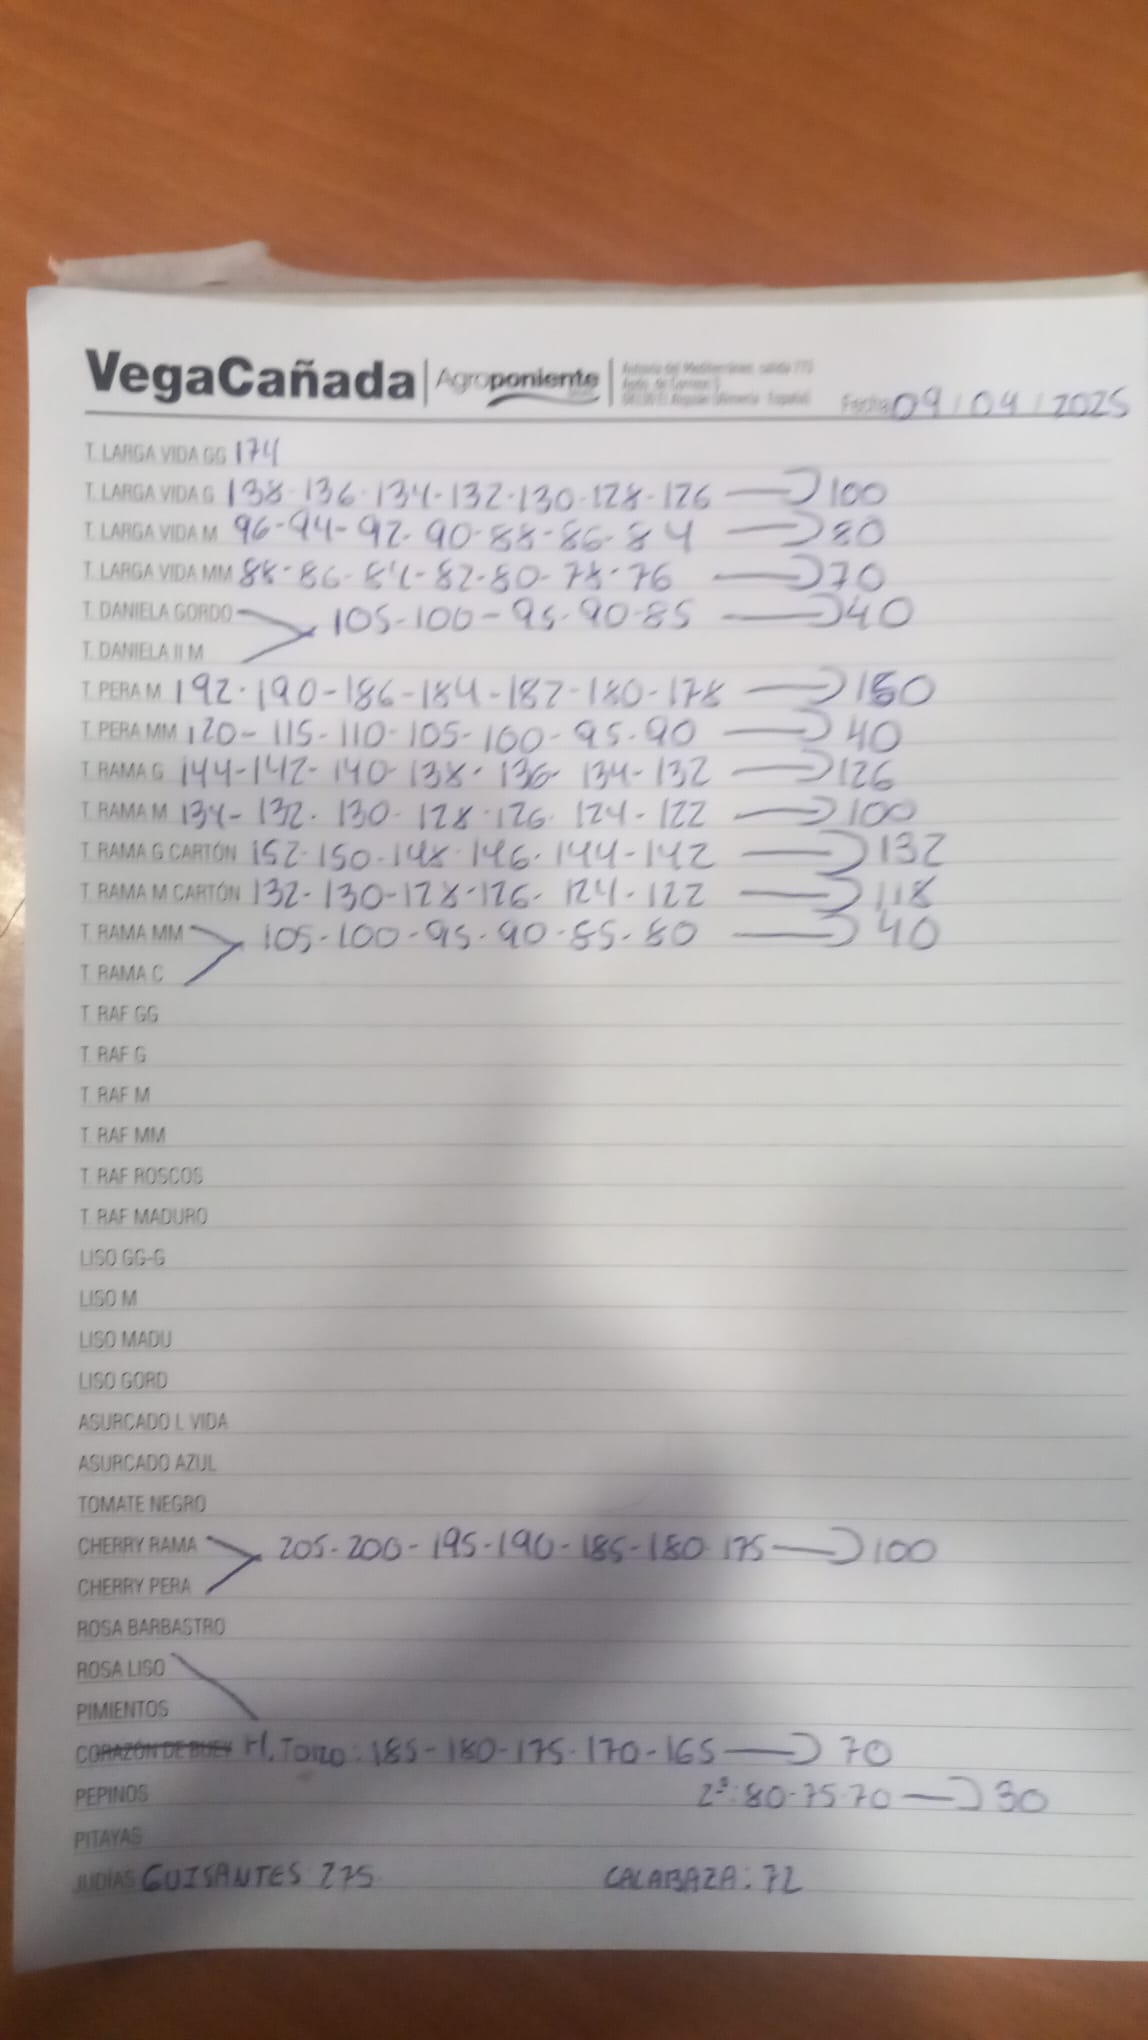 VegaCañada | Agroponiente
Fecha 09/04/2025
T. LARGA VIDA GG 174
T. LARGA VIDA G 138-136-134-132-130-128-126 → 100
T. LARGA VIDA M 96-94-92-90-88-86-84 → 80
T. LARGA VIDA MM 88-86-84-82-80-78-76 → 70
T. DANIELA GORDO 105-100-95-90-85 → 40
T. DANIELA II M
T. PERA M 192-190-186-184-182-180-178 → 150
T. PERA MM 120-115-110-105-100-95-90 → 40
T. RAMA G 144-142-140-138-136-134-132 → 126
T. RAMA M 134-132-130-128-126-124-122 → 100
T. RAMA G CARTÓN 152-150-148-146-144-142 → 132
T. RAMA M CARTÓN 132-130-128-126-124-122 → 118
T. RAMA MM 105-100-95-90-85-80 → 40
T. RAMA C
T. RAF GG
T. RAF G
T. RAF M
T. RAF MM
T. RAF ROSCOS
T. RAF MADURO
LISO GG-G
LISO M
LISO MADU
LISO GORD
ASURCADO L VIDA
ASURCADO AZUL
TOMATE NEGRO
CHERRY RAMA 205-200-195-190-185-180-175 → 100
CHERRY PERA
ROSA BARBASTRO
ROSA LISO
PIMIENTOS
CORAZÓN DE BUEY H. TORO: 185-180-175-170-165 → 70
PEPINOS 2ª: 80-75-70 → 30
PITAYAS
JUDÍAS GUISANTES 275 CALABAZA: 72